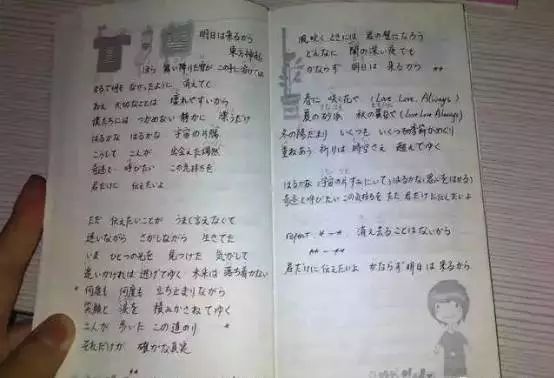 明日は来るから
東方神起
ほら 舞い降りた雪が この手に溶けては
まるで何も なかったように 消えてく
ねえ 大切なことは 壊れやすいから
僕たちには つかめない 静かに 漂うだけ
はるかな はるかな 宇宙の片隅
こうして こんが 出会えた偶然
奇迹と 呼びたい この気持ちを
君だけに 伝えたいよ
ただ 伝えたいことが うまく言えなくて
迷いながら さがしながら 生きてた
いま ひとつの光を 見つけた 気がして
追いかければ 逃げてゆく 未来は 落ち着かない
* 何度も 何度も 立ち止まりながら
笑顔と 涙を 積みかさねてゆく
こんが 歩いた この道のり *
それだけが 確かな真実
**
風吹く ときには 君の壁になろう
どんなに 闇の深い夜でも
かならず 明日は 来るから **
春に 咲く花や (Love Love Always)
夏の砂浜 秋の黄昏 (Love Love Always)
冬の陽だまり いくつも いくつも季節がめぐり
重ねあう 祈りは 時空さえ 越えてゆく
奇迹と呼びたい この気持ちを ただ 君だけに伝えたいよ
repeat * — * 消え去ることはないから
** — **
君だけに伝えたいよ かならず明日は来るから